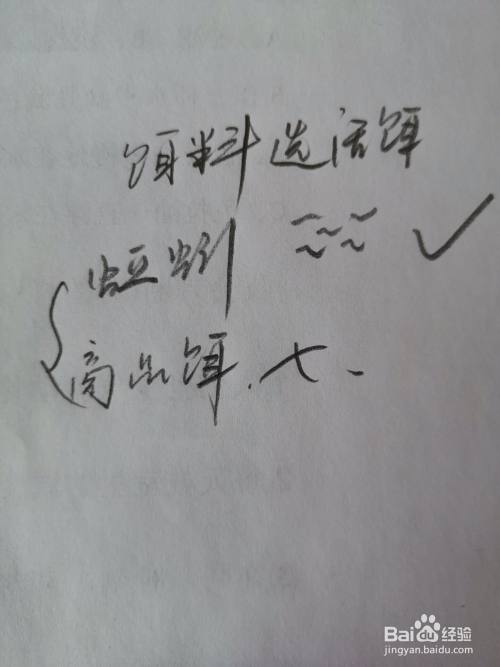 饵料选活饵
蚯蚓 ✓
商品饵.
Bai 经验
jingyan.baidu.com